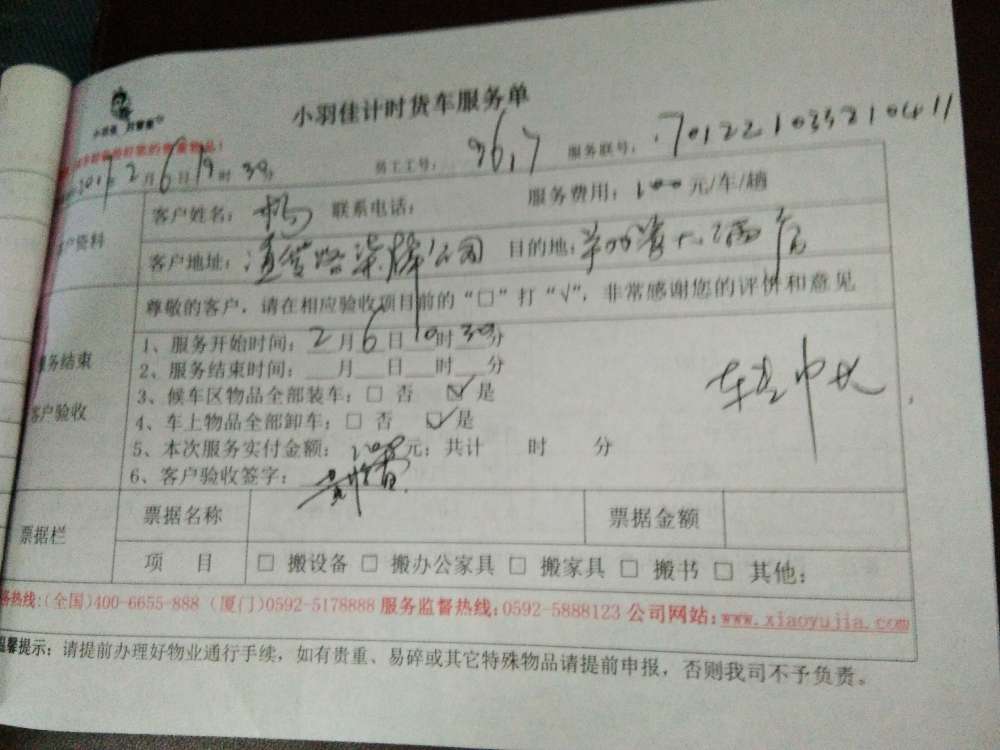 小羽佳计时货车服务单
员工工号: 9617 服务联号: 701221033210411
2月6日19时30分
客户姓名: 杨 联系电话: 服务费用: 100元/车/趟
客户资料
客户地址: 目的地:
尊敬的客户,请在相应验收项目前的“□”打“√”,非常感谢您的评价和意见
1、服务开始时间: 2月6日19时30分
服务结束
2、服务结束时间: 月 日 时 分
3、候车区物品全部装车: □ 否 ☑ 是
客户验收
4、车上物品全部卸车: □ 否 ☑ 是
5、本次服务实付金额: 元; 共计 时 分
6、客户验收签字:
票据名称 票据金额
票据栏
项 目 □ 搬设备 □ 搬办公家具 □ 搬家具 □ 搬书 □ 其他:
务热线:(全国)400-6655-888 (厦门)0592-5178888 服务监督热线:0592-5888123 公司网站: www.xiaoyujia.com
温馨提示: 请提前办理好物业通行手续,如有贵重、易碎或其它特殊物品请提前申报,否则我司不予负责。